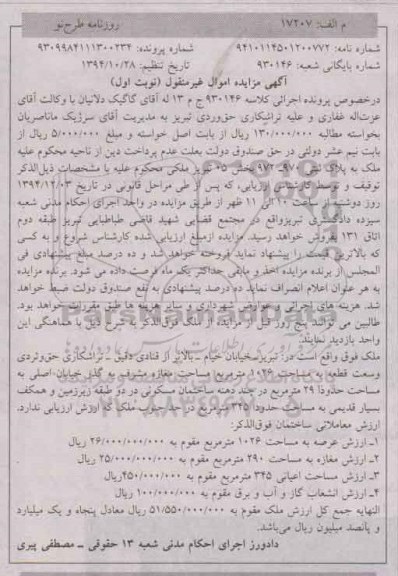 م الف: ۱۷۲۰۷ روزنامه طرح‌نو
شماره نامه: ۹۴۱۰۱۱۴۵۰۱۲۰۰۷۷۲ شماره پرونده: ۹۳۰۹۹۸۴۱۱۱۳۰۰۲۳۴
شماره بایگانی شعبه: ۹۳۰۱۴۶ تاریخ تنظیم: ۱۳۹۴/۱۰/۲۸
آگهی مزایده اموال غیرمنقول (نوبت اول)
درخصوص پرونده اجرائی کلاسه ۹۳۰۱۴۶ ج م ۱۳ له آقای گاگیک دلانیان با وکالت آقای
عزت‌اله غفاری و علیه تراشکاری حق‌وردی تبریز به مدیریت آقای سرژیک ماناصریان
بخواسته مطالبه ۱۳۰/۰۰۰/۰۰۰ ریال از بابت اصل خواسته و مبلغ ۵/۰۰۰/۰۰۰ ریال از
بابت نیم عشر دولتی در حق صندوق دولت بعلت عدم پرداخت دین از ناحیه محکوم علیه
ملک به پلاک ثبتی بخش ۰۵ تبریز ملکی محکوم علیه با مشخصات ذیل‌الذکر
توقیف و توسط کارشناس ارزیابی، که پس از طی مراحل قانونی در تاریخ ۱۳۹۴/۱۲/۰۳
روز دوشنبه از ساعت ۱۰ الی ۱۱ ظهر از طریق مزایده در واحد اجرای احکام مدنی شعبه
سیزده دادگستری تبریزواقع در مجتمع قضایی شهید قاضی طباطبایی تبریز طبقه دوم
اتاق ۱۳۱ بفروش خواهد رسید. مزایده ازمبلغ ارزیابی شده کارشناس شروع و به کسی
که بالاترین قیمت را پیشنهاد نماید فروخته خواهد شد و ده درصد مبلغ پیشنهادی فی
المجلس از برنده مزایده اخذ و مابقی حداکثر یک ماه فرصت داده می شود. برنده مزایده
به هر عنوان اعلام انصراف نماید ده درصد پیشنهادی به نفع صندوق دولت ضبط خواهد
شد. هزینه های اجرائی و عوارض شهرداری و سایر هزینه ها طبق مقررات خواهد بود.
طالبین می توانند پنج روز قبل از مزایده از ملک فوق‌الذکر به شرح ذیل با هماهنگی این
واحد بازدید نمایند:
ملک فوق واقع است در: تبریز-خیابان خیام - بالاتر از قنادی دقیق - تراشکاری حق‌وردی
وسعت قطعه به مساحت ۱۰۲۶ مترمربع مساحت مغازه مشرف به گذر خیابان اصلی به
مساحت حدودا ۲۹ مترمربع در چند دهنه ساختمان مسکونی در دو طبقه زیرزمین و همکف
بسیار قدیمی به مساحت حدودا ۳۴۵ مترمربع در ملک که ارزش ارزیابی ندارد.
ارزش معاملاتی ساختمان فوق‌الذکر:
۱ـ ارزش عرصه به مساحت ۱۰۲۶ مترمربع مقوم به ۲۶/۰۰۰/۰۰۰/۰۰۰ ریال
۲ـ ارزش مغازه به مساحت ۲۹۰ مترمربع مقوم به ۲۵/۰۰۰/۰۰۰/۰۰۰ ریال
۳ـ ارزش مساحت اعیانی ۳۴۵ مترمربع مقوم به ۴۵۰/۰۰۰/۰۰۰ریال
۴ـ ارزش انشعاب گاز و آب و برق مقوم به ۱۰۰/۰۰۰/۰۰۰ ریال
النهایه جمع کل ارزش ملک مقوم به ۵۱/۵۵۰/۰۰۰/۰۰۰ ریال معادل پنجاه و یک میلیارد
و پانصد میلیون ریال می‌باشد.
دادورز اجرای احکام مدنی شعبه ۱۳ حقوقی ــ مصطفی پیری
ParsNamadData